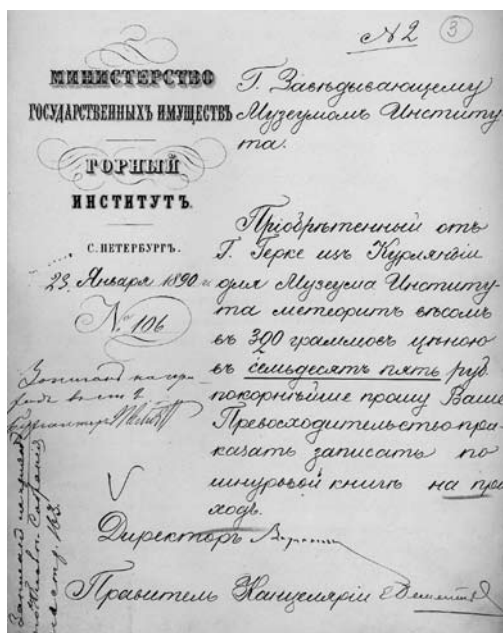 № 2
3
МИНИСТЕРСТВО
ГОСУДАРСТВЕННЫХЪ ИМУЩЕСТВЪ
ГОРНЫЙ
ИНСТИТУТЪ.
С. ПЕТЕРБУРГЪ.
23 Января 1890 г.
№ 106
Г. Завѣдывающему
Музеумомъ Институ-
та.
Пріобрѣтенный отъ
Г. Герке изъ Курляндіи
для Музеума Институ-
та метеоритъ вѣсомъ
въ 390 граммовъ цѣною
въ семьдесятъ пять руб.
покорнѣйше прошу Ваше
Превосходительство при-
казать записать по
шнуровой книгѣ на при-
ходъ.
Директоръ
Правитель Канцеляріи
Записано на при-
Бухгалтеръ
Записано на приход
стр. 163.